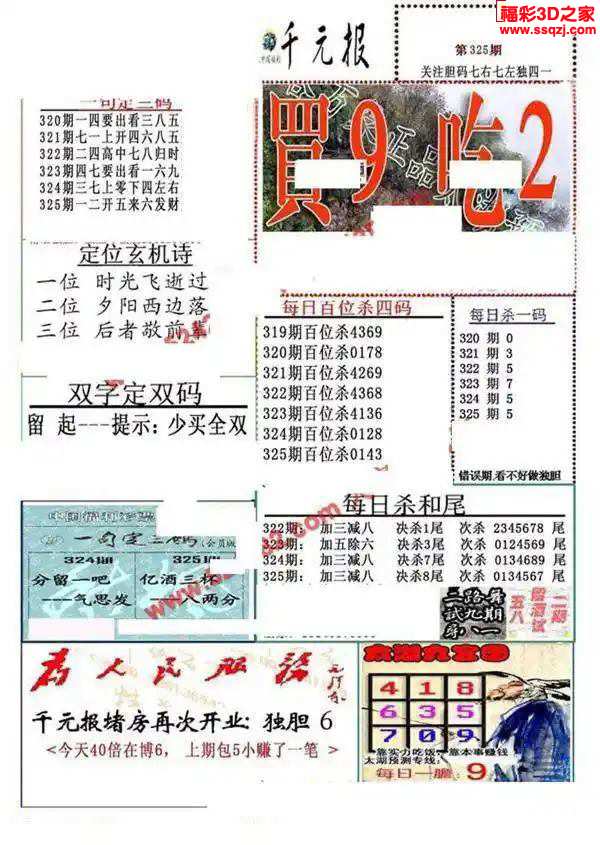 福彩3D之家
www.ssqzj.com
千元报
第325期
关注胆码七右七左独四一
一句定三码
320期一四要出看三八五
321期七一上开四六八五
322期二四高中七八归时
323期四七要出看一六九
324期三七上零下四左右
325期一二开五来六发财
買9吃2
定位玄机诗
一位 时光飞逝过
二位 夕阳西边落
三位 后者敬前辈
每日百位杀四码
319期百位杀4369
320期百位杀0178
321期百位杀4269
322期百位杀4368
323期百位杀4136
324期百位杀0128
325期百位杀0143
每日杀一码
320 期 0
321 期 3
322 期 5
323 期 7
324 期 5
325 期 5
错误期,看不好做独胆
双字定双码
留 起---提示:少买全双
每日杀和尾
322期: 加三减八 决杀1尾 次杀 2345678 尾
323期: 加五除六 决杀3尾 次杀 0124569 尾
324期: 加三减八 决杀5尾 次杀 0134569 尾
325期: 加三减八 决杀8尾 次杀 0134567 尾
一句定三码(会员版
324期
325期
分留一吧
---气思发
亿酒三杯
---八两分
为人民服务
千元报堵房再次开业: 独胆 6
<今天40倍在博6, 上期包5小赚了一笔 >
太湖九宫图
4 1 8
6 3 5
7 0 9
靠实力吃饭,靠本事赚钱
太湖预测专线:
每日一胆 9